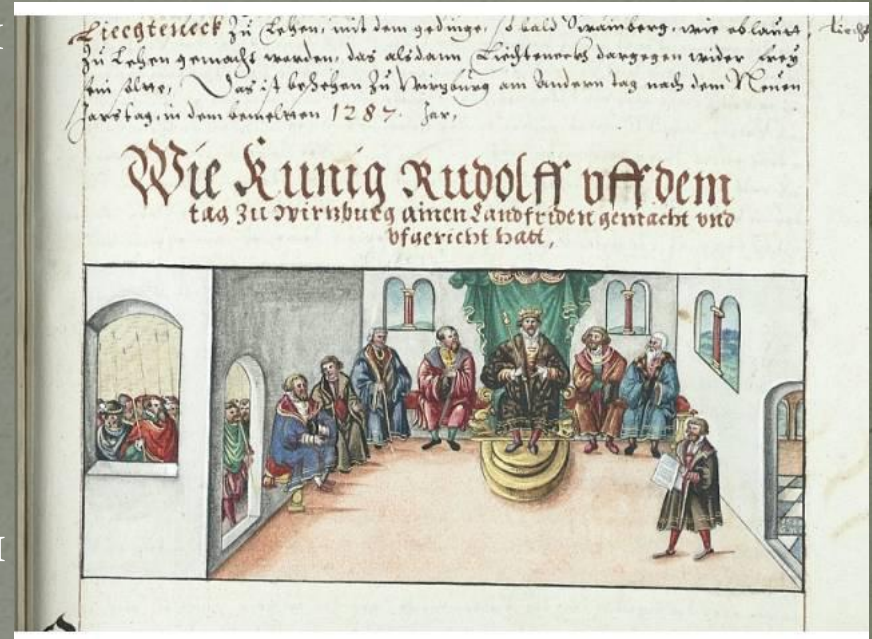 Liechteneck zu Lehen, mit dem gedinge, so bald Swainberg, wie oblautt,
zu Lehen gemacht werden, das alsdann Liechteneck dargegen wider frey
sein solte, Das ist besehen zu Wirtzburg am andern tag nach dem Neuen
Jars tag, in dem bemelten 1287. Jar,
Wie Kunig Rudolff vff dem
tag zu Wirtzburg ainen Landfriden gemacht vnd
vfgericht hatt,